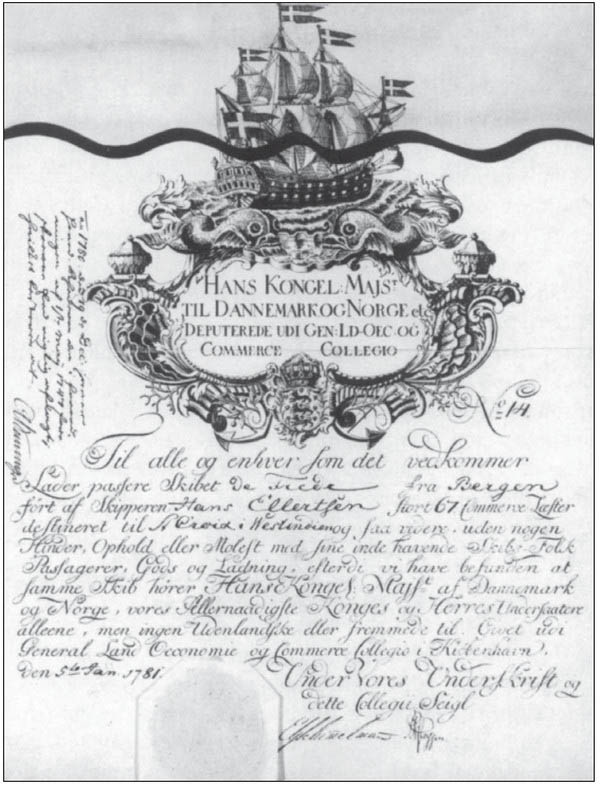 HANS KONGEL: MAJST
TIL DANNEMARK OG NORGE etc
DEPUTEREDE UDI GEN: LD-OEC. OG
COMMERCE COLLEGIO
No 14.
Til alle og enhver som det vedkommer
Lader passere Skibet De Frede fra Bergen
ført af Skipperen Hans Ellertsen stort 67 Commerce Læster
destineret til St Croix i Westindien og saa videre, uden nogen
Hinder, Ophold eller Molest med sine inde havende Skibs-Folk
Passagerer, Gods og Ladning, efterdi vi have befunden at
samme Skib hører Hans Konges: Majst. af Dannemark
og Norge, vores Allernaadigste Konges og Herres Undersaatere
alleene, men ingen Udenlandske eller fremmede til. Givet udi
General Land Oeconomie og Commerce Collegio i Kiøbenhavn,
den 5te Jan. 1781.
Under Vores Underskrift og
dette Collegii Seigl